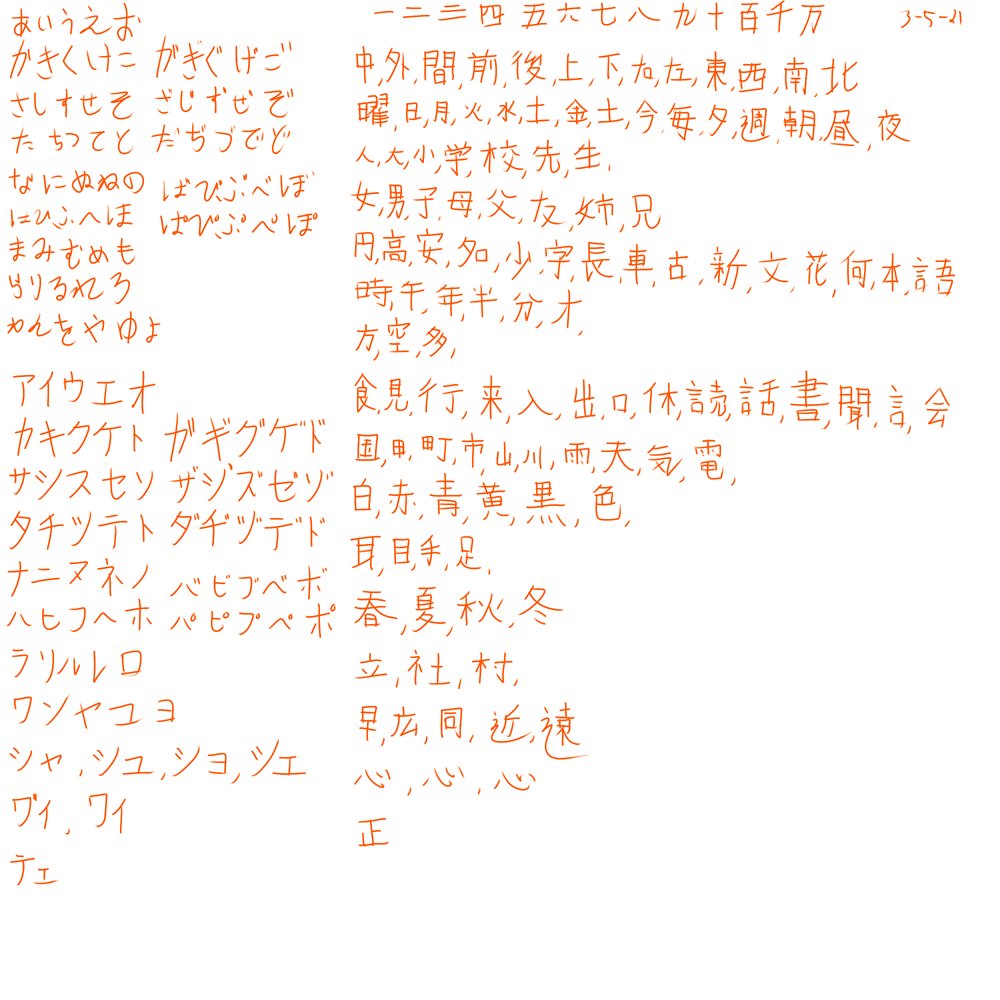 あいうえお
かきくけこ がぎぐげご
さしすせそ ざじずぜぞ
たちつてと だぢづでど
なにぬねの ばびぶべぼ
はひふへほ ぱぴぷぺぽ
まみむめも
らりるれろ
わんをやゆよ
アイウエオ
カキクケト ガギグゲド
サシスセソ ザジズゼゾ
タチツテト ダヂヅデド
ナニヌネノ バビブベボ
ハヒフヘホ パピプペポ
ラリルレロ
ワンヤユヨ
シャ,シュ,ショ,シェ
ヴィ,ワイ
テェ
一二三四五六七八九十百千万 3-5-21
中,外,間,前,後,上,下,右,左,東,西,南,北
曜,日,月,火,水,土,金,土,今,毎,夕,週,朝,昼,夜
人,大,小,学,校,先,生,
女,男,子,母,父,友,姉,兄
円,高,安,名,少,字,長,車,古,新,文,花,何,本,語
時,午,年,半,分,才,
方,空,多,
食,見,行,来,入,出,口,休,読,話,書,聞,言,会
国,田,町,市,山,川,雨,天,気,電,
白,赤,青,黄,黒,色,
耳,目,手,足,
春,夏,秋,冬
立,社,村,
早,広,同,近,遠
心,心,心
正